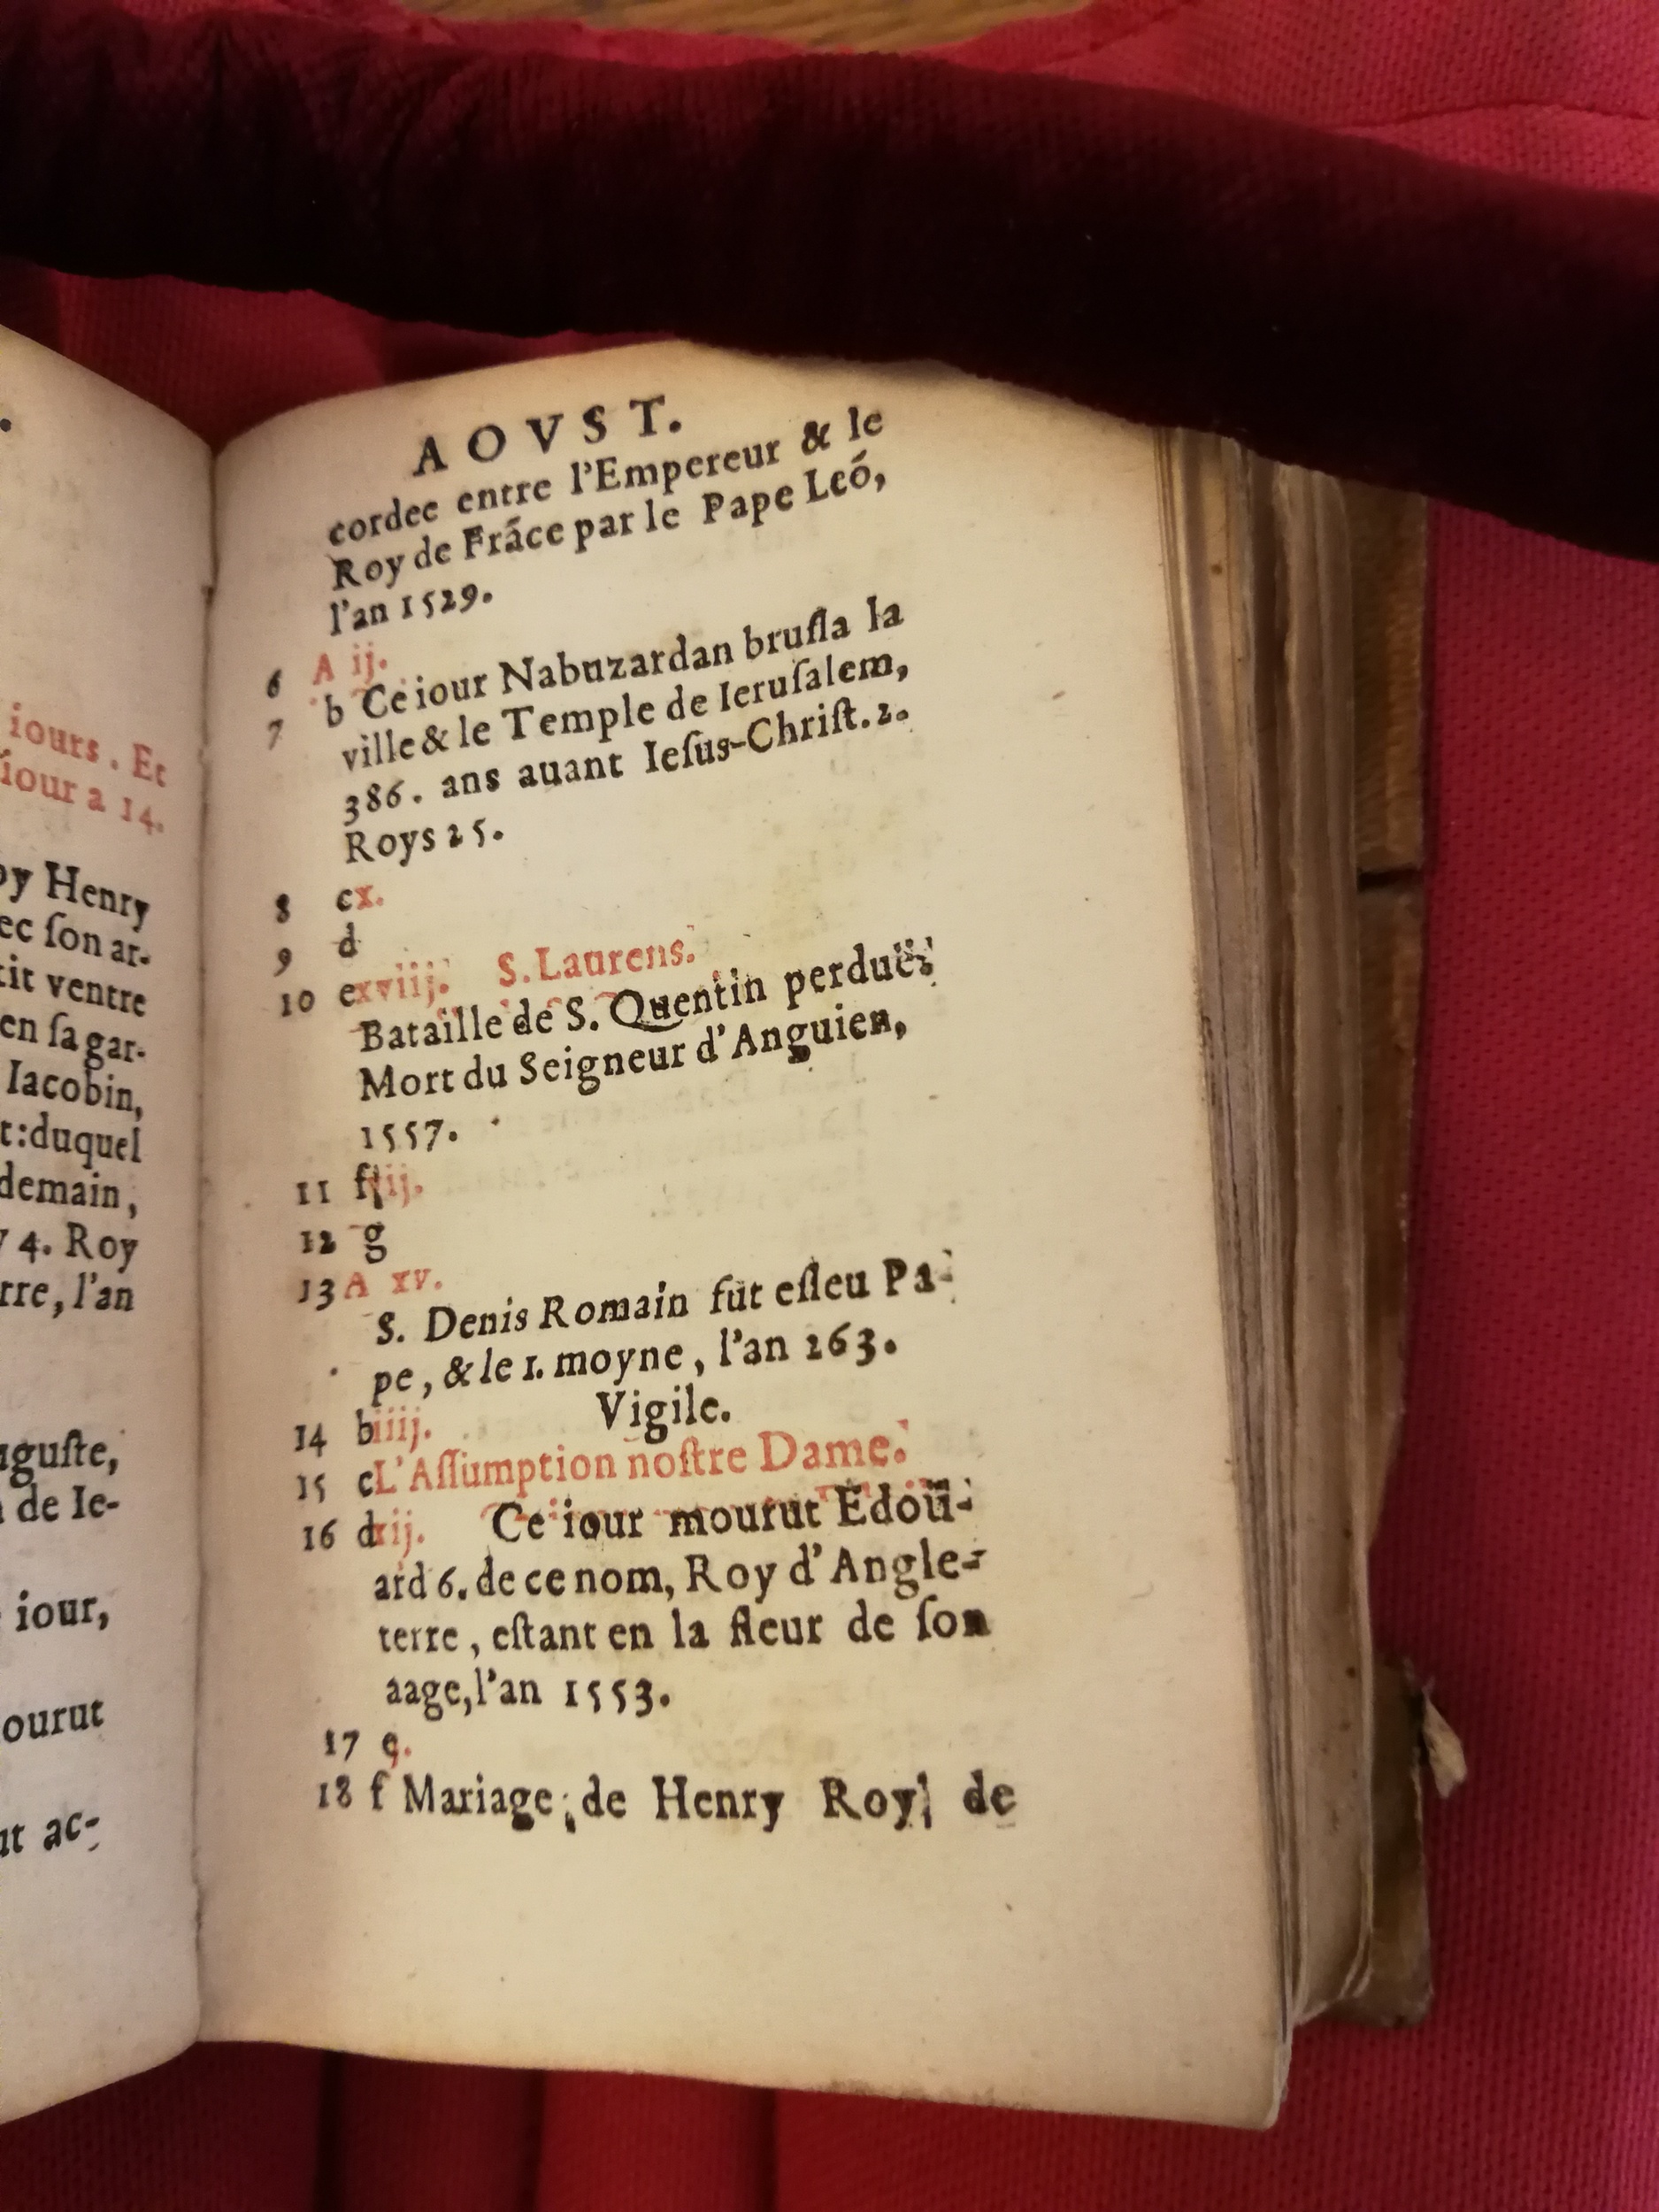 iours. Et
iour a 14.
Henry
ſon ar-
ventre
en ſa gar-
Iacobin,
duquel
demain,
4. Roy
l'an
de Ie-
iour,
ac-
AOVST.
cordee entre l'Empereur & le
Roy de Fráce par le Pape Leó,
l'an 1529.
6 A ij.
7 b Ce iour Nabuzardan bruſla la
ville & le Temple de Ieruſalem,
386. ans auant Ieſus-Chriſt. 2.
Roys 25.
8 c x.
9 d
10 e xviij. S. Laurens.
Bataille de S. Quentin perduë:
Mort du Seigneur d'Anguien,
1557.
11 f ij.
12 g
13 A xv.
S. Denis Romain fut eſleu Pa-
pe, & le 1. moyne, l'an 263.
14 b iiij. Vigile.
15 c L'Aſſumption noſtre Dame.
16 d xij. Ce iour mourut Edoü-
ard 6. de ce nom, Roy d'Angle-
terre, eſtant en la fleur de ſon
aage, l'an 1553.
17 e
18 f Mariage de Henry Roy de